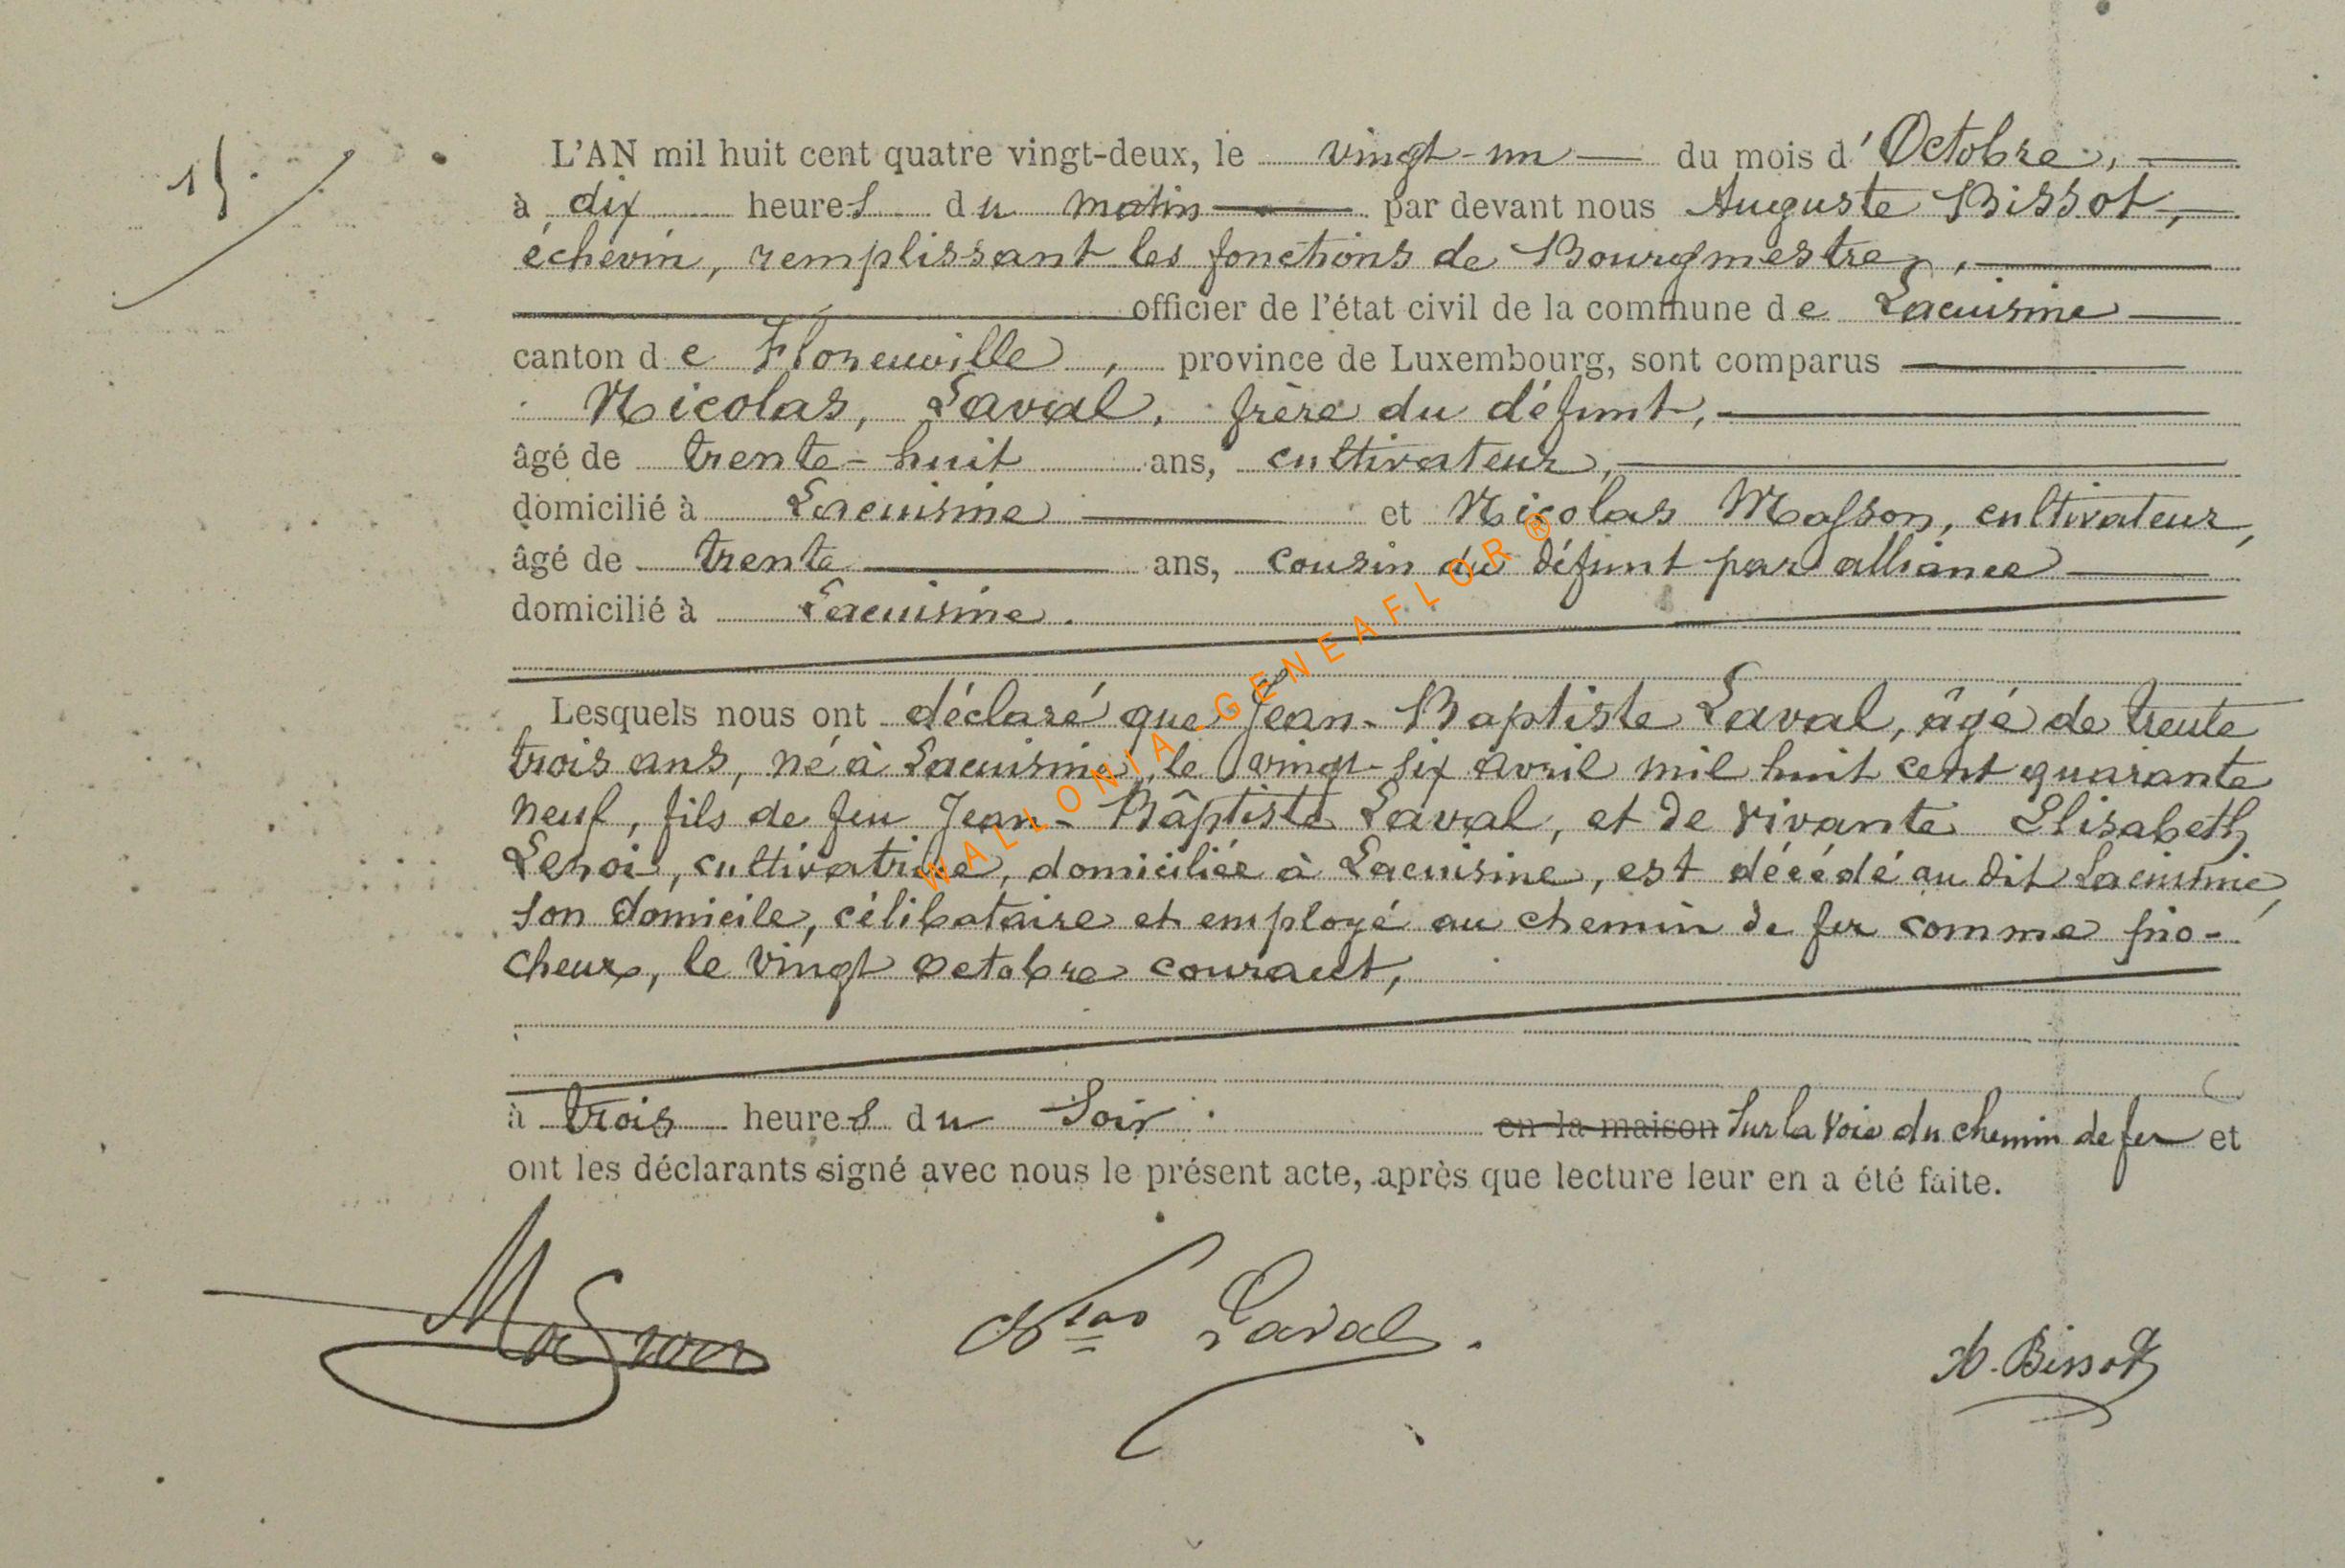 15.
L'AN mil huit cent quatre vingt-deux, le vingt-un du mois d'Octobre,
à dix heures du matin par devant nous Auguste Bissot,
échevin, remplissant les fonctions de Bourgmestre,
officier de l'état civil de la commune de Lacuisine
canton de Florenville, province de Luxembourg, sont comparus
Nicolas, Laval, frère du défunt,
âgé de trente-huit ans, cultivateur,
domicilié à Lacuisine et Nicolas Masson, cultivateur,
âgé de trente ans, cousin du défunt par alliance
domicilié à Lacuisine.
Lesquels nous ont déclaré que Jean-Baptiste Laval, âgé de trente
trois ans, né à Lacuisine, le vingt-six avril mil huit cent quarante
neuf, fils de feu Jean-Bâptiste Laval, et de vivante Elisabeth
Lenoir, cultivatrice, domiciliée à Lacuisine, est décédé au dit Lacuisine,
son domicile, célibataire et employé au chemin de fer comme pio-
cheur, le vingt octobre courant,
à trois heures du soir. en la maison sur la voie du chemin de fer et
ont les déclarants signé avec nous le présent acte, après que lecture leur en a été faite.
Masson Nlas Laval. A. Bissot
WALLONIA-GENEAFLOR®